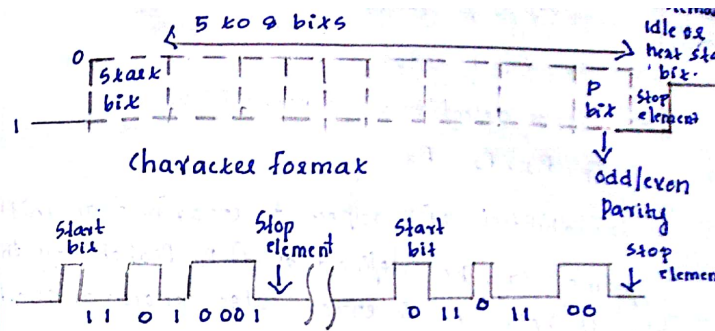 5 to 8 bits
Idle or
next sta
bit.
0
Start
bit
P
bit
Stop
element
1
Character format
odd/even
Parity
Start
bit
Stop
element
Start
bit
Stop
element
1 1 0 1 0 0 0 1 0 1 1 0 1 1 0 0